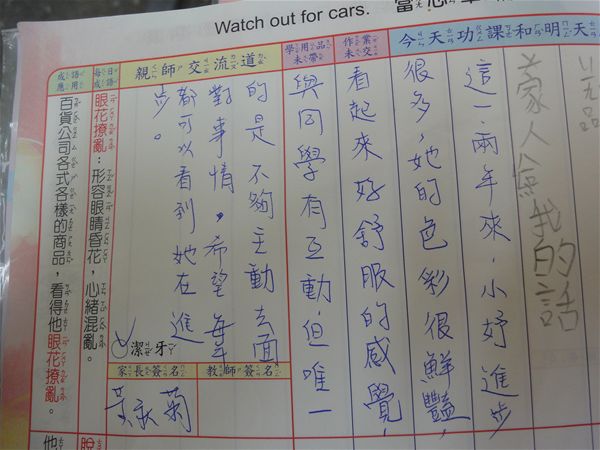 Watch out for cars.
當心
今天功課和明天
作業未交
學用品未帶
親師交流道
每日成語
成語應用
家人給我的話
這一、兩年來，小妤進步
很多，她的色彩很鮮豔，
看起來好舒服的感覺，
與同學有互動，但唯一
的是不夠主動去面
對事情，希望每年
都可以看到她在進
步。
潔牙
教師簽名
家長簽名
黃秋菊
眼花撩亂：形容眼睛昏花，心緒混亂。
百貨公司各式各樣的商品，看得他眼花撩亂。
他